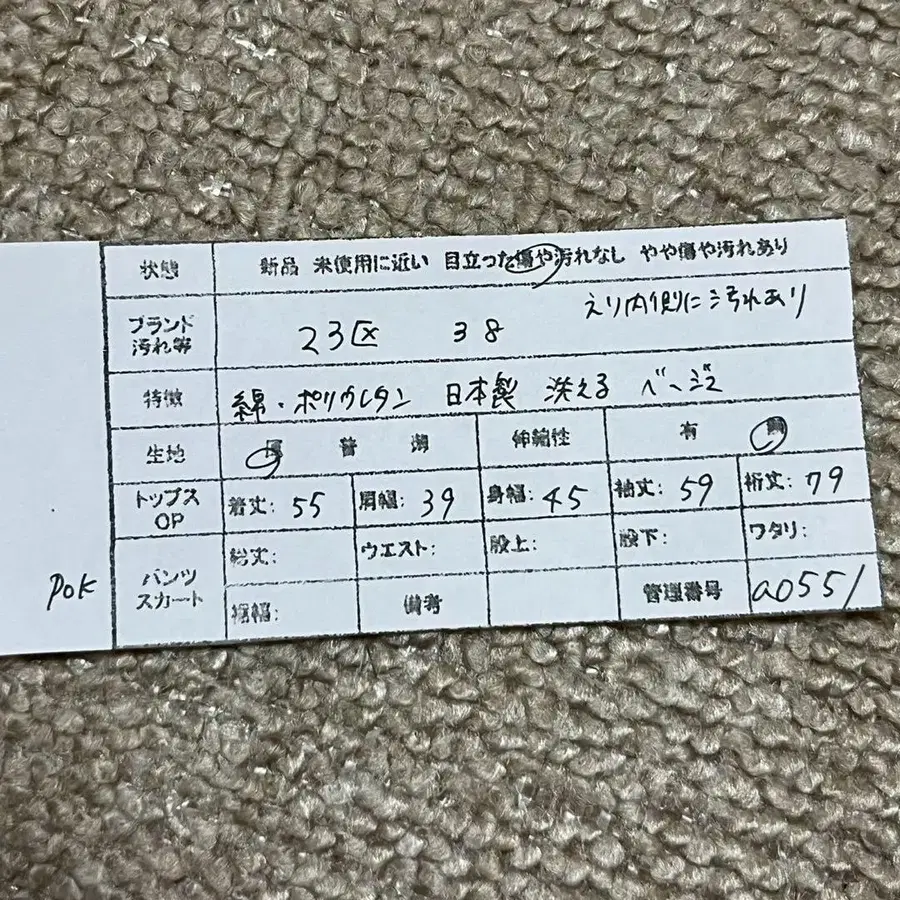 状態 新品 未使用に近い 目立った傷や汚れなし やや傷や汚れあり
ブランド 汚れ等 23区 38 えり内側に汚れあり
特徴 綿・ポリウレタン 日本製 洗える ベージュ
生地 厚 普 薄 伸縮性 有 無
トップス OP 着丈: 55 肩幅: 39 身幅: 45 袖丈: 59 裄丈: 79
パンツ スカート 総丈: ウエスト: 股上: 股下: ワタリ:
裾幅: 備考 管理番号 a0551
POK